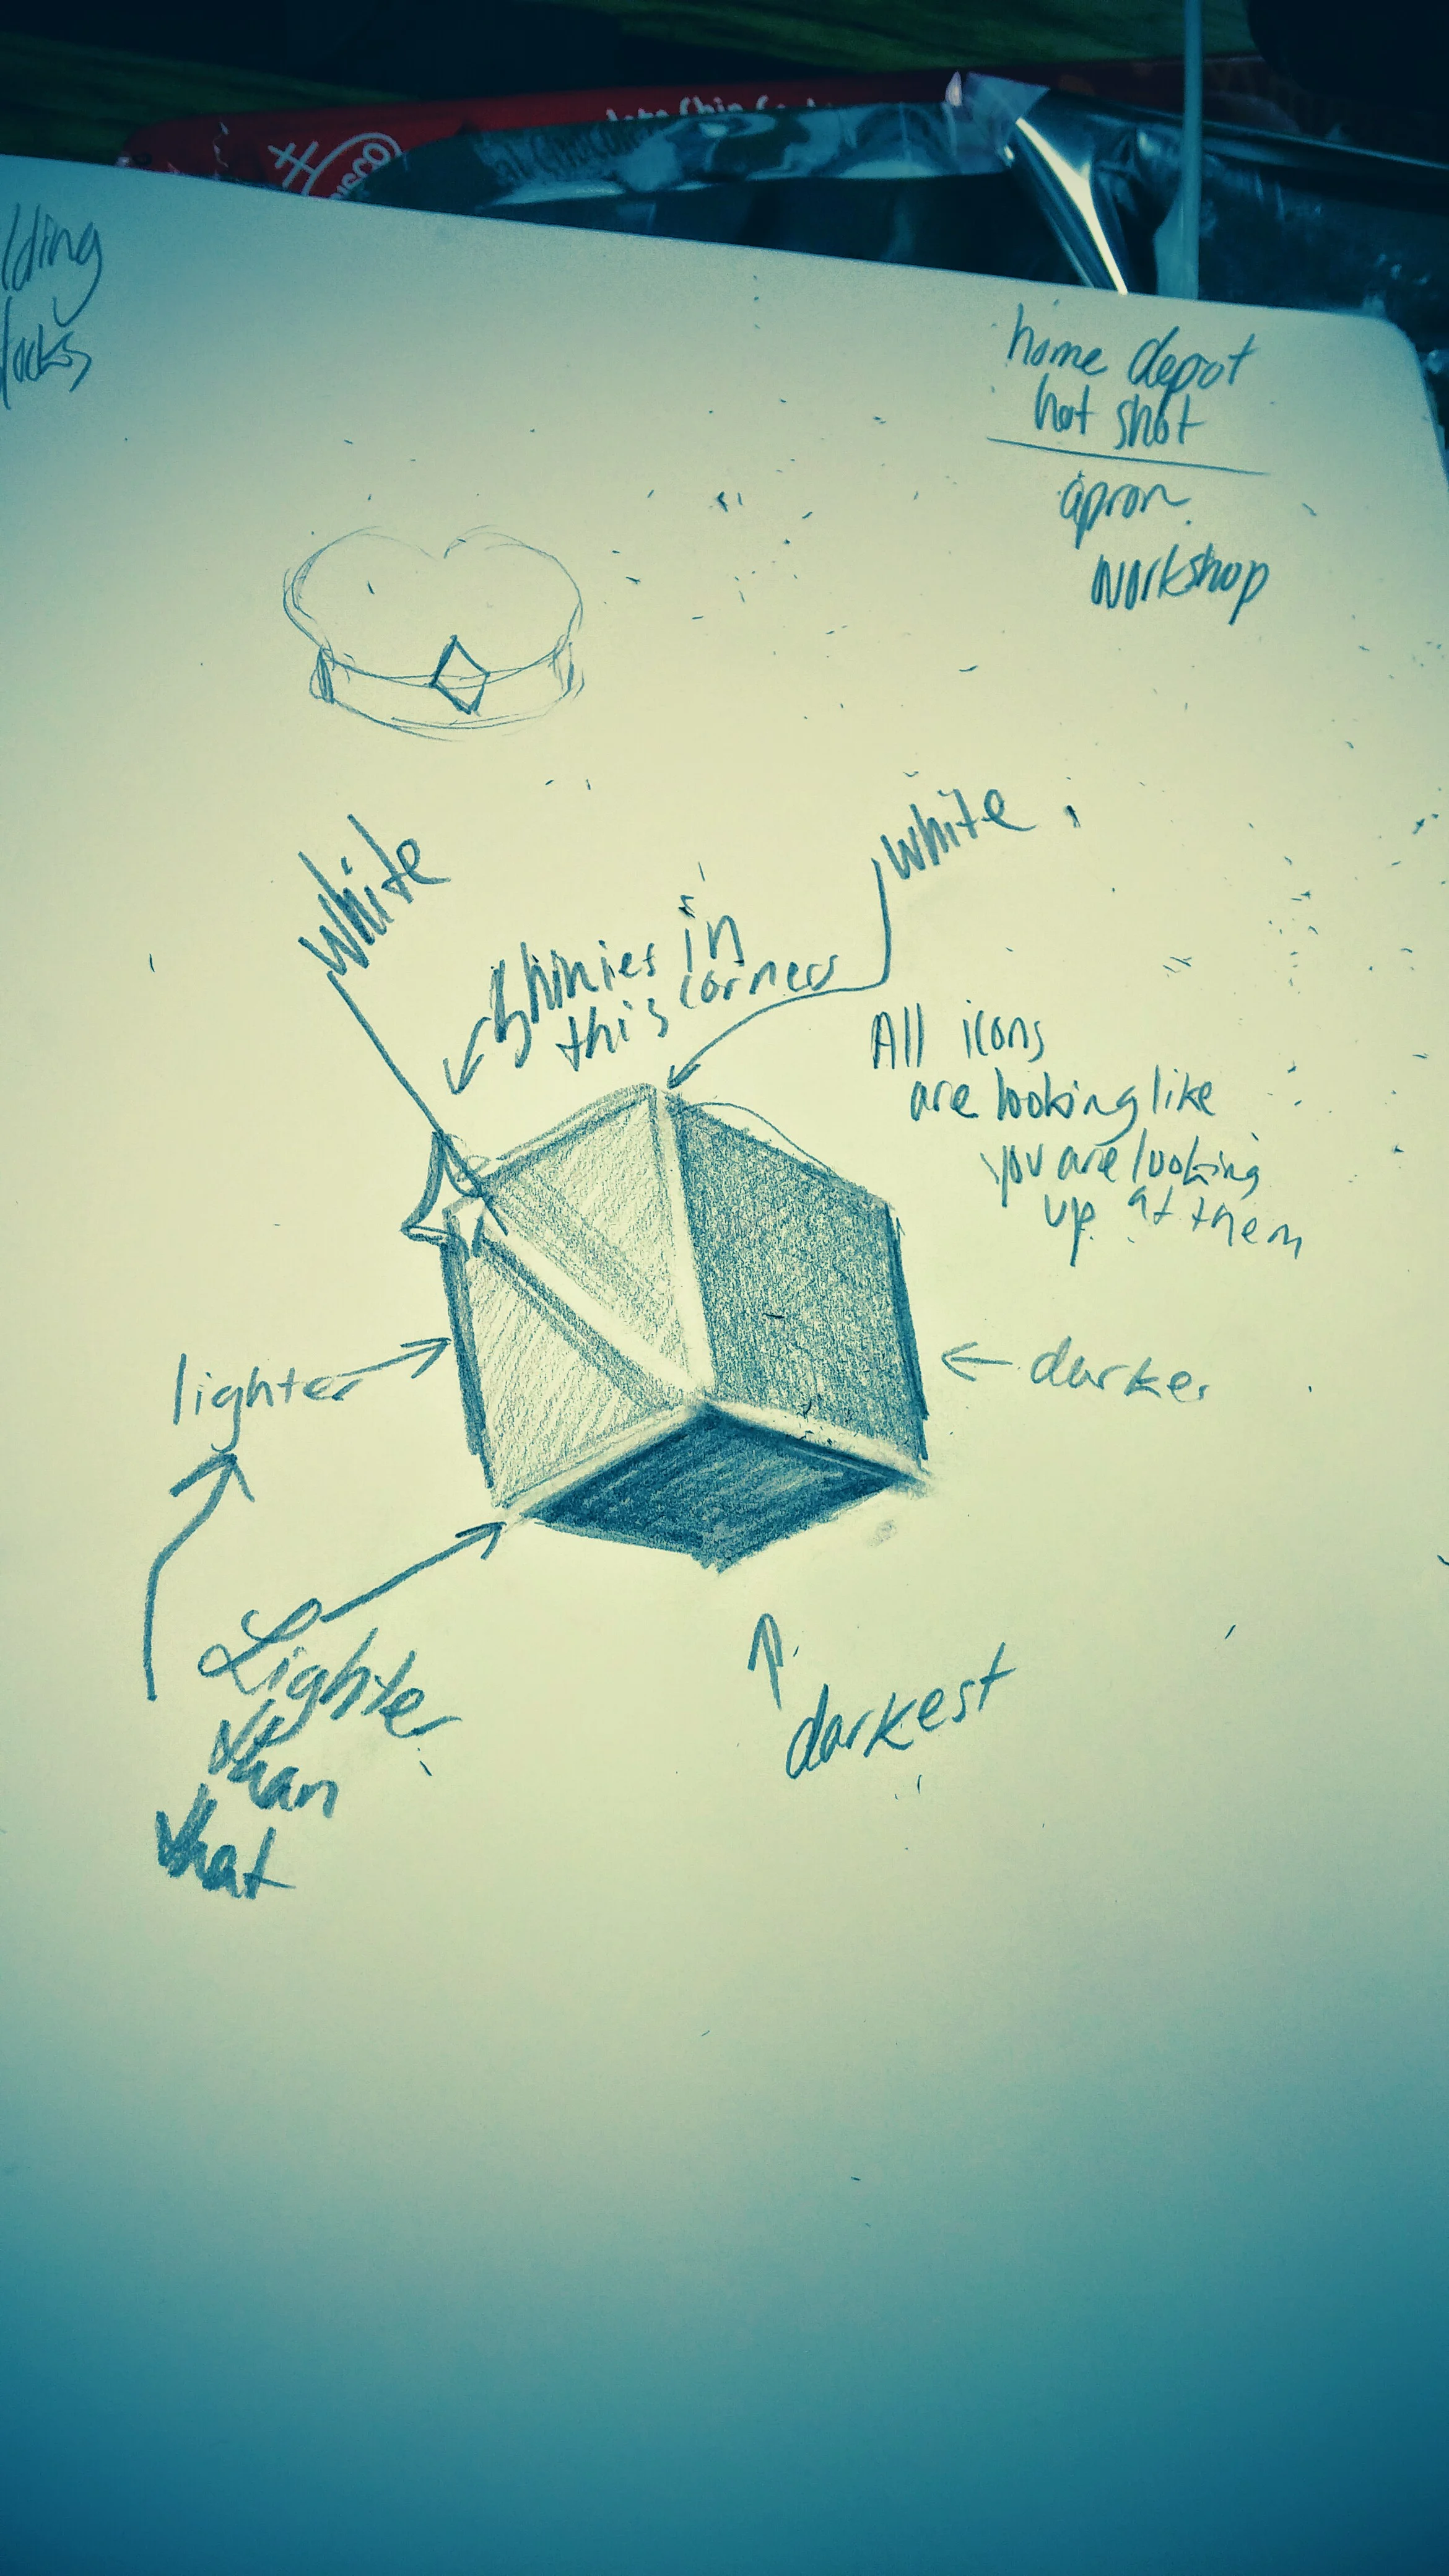 home depot
hot shot
apron
workshop
white
white
Shinies in
this corners
All icons
are looking like
you are looking
up at them
lighter
darker
Lighter
than
that
darkest